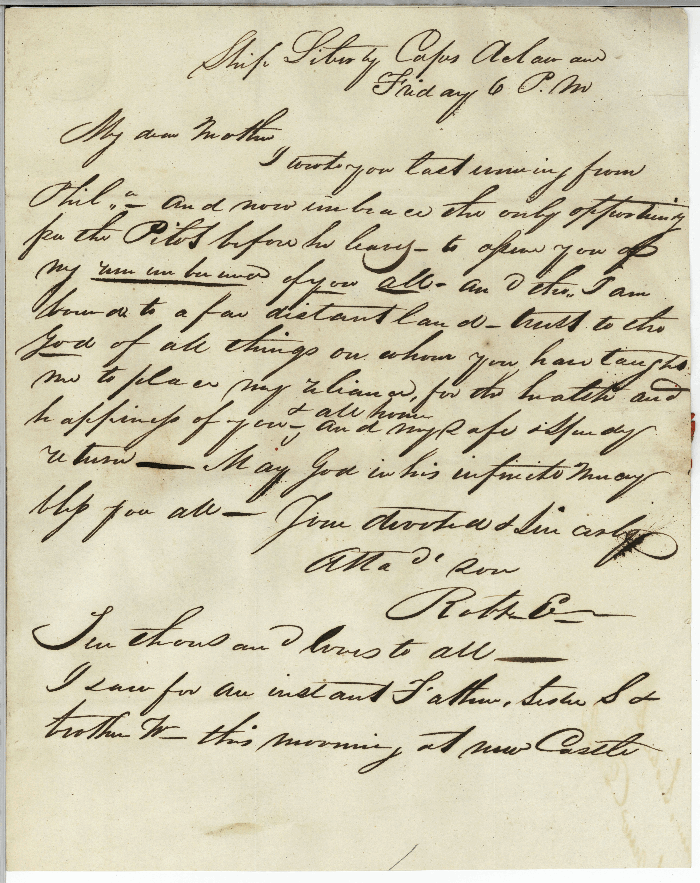 Ship Liberty Capes Delaware
Friday 6 P.M
My dear Mother
I wrote you last evening from
Phila. - and now embrace the only opportunity
per the Pilot before he leaves - to assure you of
my remembrance of you all - and tho. I am
bound to a far distant land - trust to the
God of all things on whom you have taught
me to place my reliance, for the health and
happiness of you & all home - and my safe & speedy
return — May God in his infinite Mercy
bless you all — Your devoted & Sincerely
Atta'd son
Robt. E—
Ten thousand loves to all —
I saw for an instant Father, Sister S &
brother W - this morning at new Castle